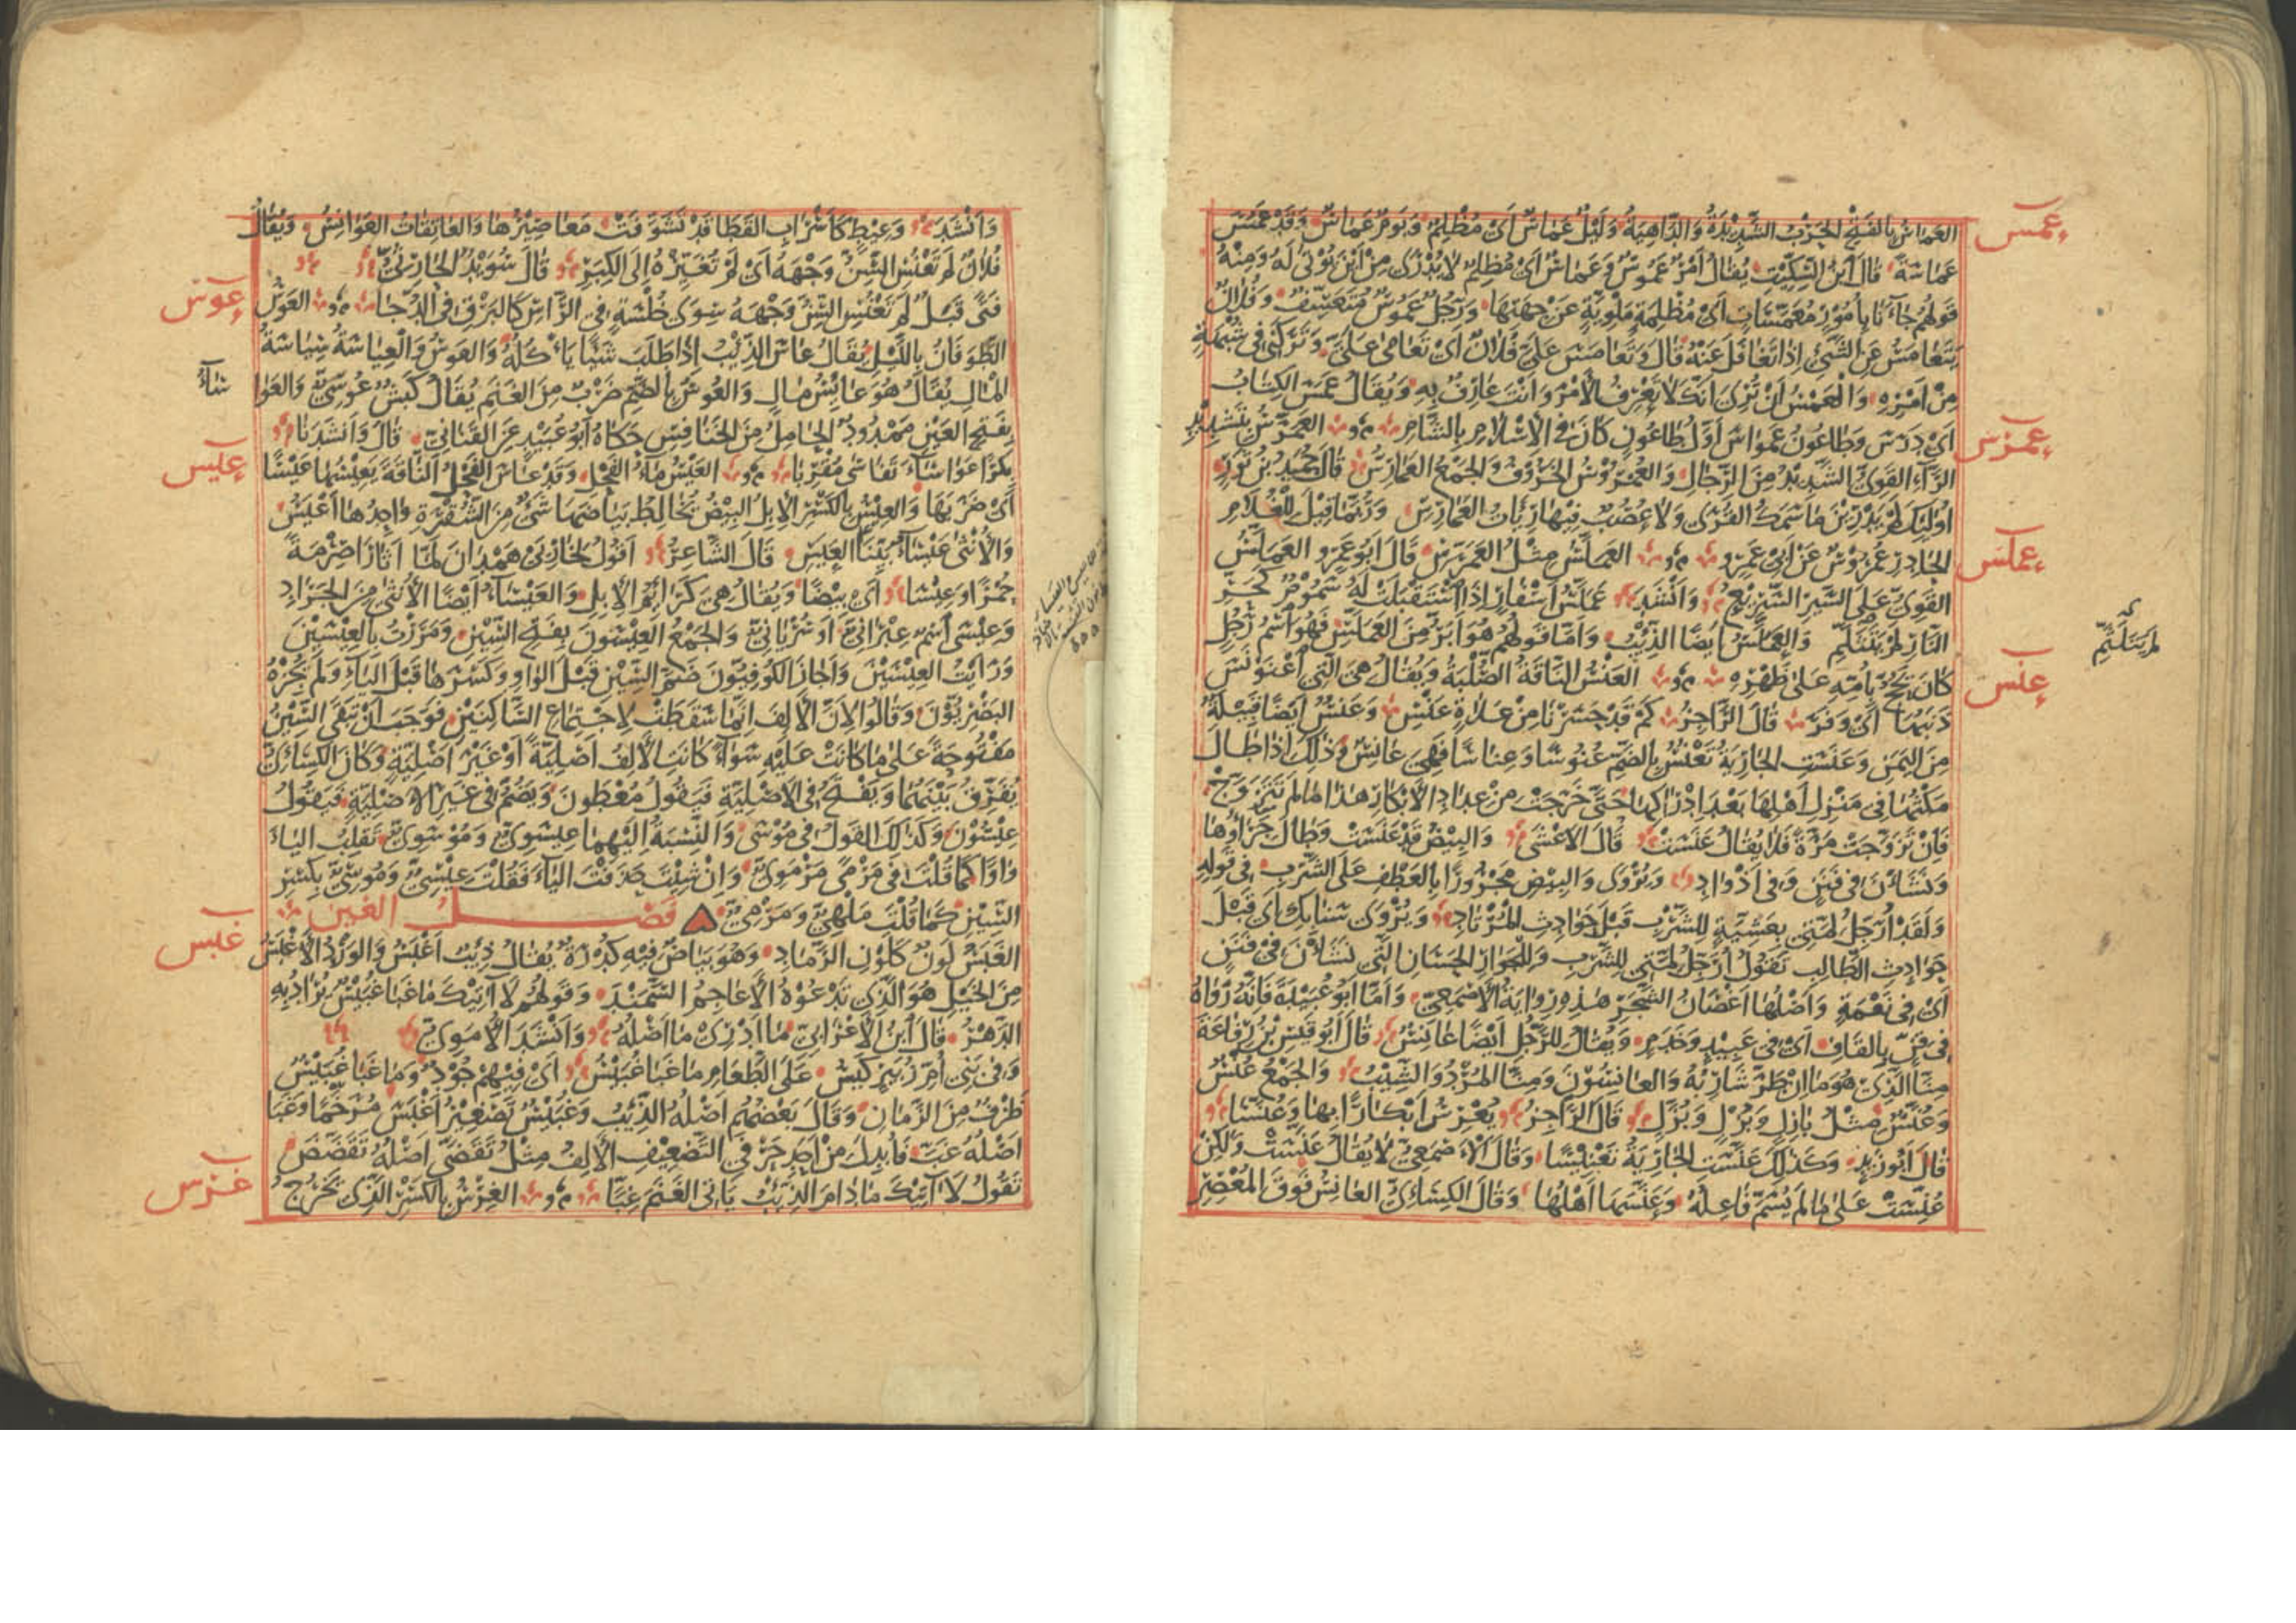 عمس
العماس بالفتح الحرب الشديدة والداهية وليل عماس اى مظلم ويوم عماس وقد عمس
عماسة قال ابن السكيت يقال امر عموس وعماس اى مظلم لا يدرى من اين يوتى له ومنه
قولهم جاءنا بامور معمسات اى مظلمة ملوية عن جهتها ورجل عموس متعسف وفلان
يتعامس عن الشئ اذا تغافل عنه قال وتعامس على فلان اى تعامى على وتركنى فى شبهة
من امره والعمس ان ترى انك لا تعرف الامر وانت عارف به ويقال عمس الكتاب
اى درس وطاعون عمواس اول طاعون كان فى الاسلام بالشام العمرس بتشديد
عمرس
الراء القوى الشديد من الرجال والعمروس الخروف والجمع العمارس قال حميد بن ثور
اولئك لم يدرين ما سمك القرى ولا عصب فيها رئات العمارس وربما قيل للغلام
الحادر عمروس عن ابى عمرو العملس مثل العمرس قال ابو عمرو العملس
عملس
القوى على السير السريع وانشد عملس اسفار اذا استقبلت له سموم كحر
النار لم يتلثم والعملس ايضا الذئب واما قولهم هو ابر من العملس فهو اسم رجل
لم يتلثم
كان يحج بامه على ظهره العنس الناقة الصلبة ويقال هى التى اعنونس
عنس
ذنبها اى وفر قال الراجز كم قد حسرنا من علاة عنس وعنس ايضا قبيلة
من اليمن وعنست الجارية تعنس بالضم عنوسا وعناسا فهى عانس وذلك اذا طال
مكثها فى منزل اهلها بعد ادراكها حتى خرجت من عداد الابكار هذا ما لم تتزوج
فان تزوجت مرة فلا يقال عنست قال الاعشى والبيض قد عنست وطال جراؤها
ونشان فى فنن وفى اذواد ويروى والبيض مجرورا بالعطف على الشرب فى قوله
ولقد ارجل لمتى بعشية للشرب قبل حوادث المرتاد ويروى سنابك اى قبل
حوادث الطالب تقول ارجل لمتى للشرب وللجوار الحسان التى نشان فى فنن
اى فى نعمة واصلها اغصان الشجر هذه رواية الاصمعى واما ابو عبيدة فانه رواه
فى قن بالقاف اى فى عبيد وخدم ويقال للرجل ايضا عانس قال ابو قيس بن رفاعة
منا الذى هو ما ان طر شاربه والعانسون ومنا المرد والشيب والجمع عنس
وعنس مثل بازل وبزل وبزل قال الراجز يعرس ابكارا بها وعنسا
قال ابو زيد وكذلك عنست الجارية تعنيسا وقال الاصمعى لا يقال عنست ولكن
عنست على ما لم يسم فاعله وعنسها اهلها وقال الكسائى العانس فوق المعصر
وانشد وعيط كاسراب القطا قد تشوفت معاصيرها والعاتقات العوانس ويقال
فلان لم تعنس السن وجهه اى لم تغيره الى الكبر قال سويد الحارثى
فتى قبل لم تعنس السن وجهه سوى خلسة فى الراس كالبرق فى الدجا العوس
عوس
الطوفان بالليل يقال عاس الذئب اذا طلب شيا ياكله والعوس والعياسة سياسة
المال يقال هو عائس مال والعوس بالضم ضرب من الغنم يقال كبش عوسى والعوا
ساء
بفتح العين ممدود الحامل من الخنافس حكاه ابو عبيد عن القنانى قال وانشدنا
بكرا عواساء تفاسى مقربا العيس ماء الفحل وقد عاس الفحل الناقة يعيسها عيسا
عيس
اى ضربها والعيس بالكسر الابل البيض يخالط بياضها شئ من الشقرة واحدها اعيس
والانثى عيساء بينا العيس قال الشاعر اقول لخاربى همدان لما اثارا صرمة
حمرا وعيسا اى بيضا ويقال هى كرائم الابل والعيساء ايضا الانثى من الجراد
وعيسى اسم عبرانى او سريانى والجمع العيسون بفتح السين ومررت بالعيسين
ورايت العيسين واجاز الكوفيون ضم السين قبل الواو وكسرها قبل الياء ولم يجزه
البصريون وقالوا لان الالف انما سقطت لاجتماع الساكنين فوجب ان تبقى السين
مفتوحة على ما كانت عليه سواء كانت الالف اصلية او غير اصلية وكان الكسائى
يفرق بينهما ويفتح فى الاصلية فيقول معطون ويضم فى غير الاصلية فيقول
عيسون وكذلك القول فى موسى والنسبة اليهما عيسوى وموسوى تقلب الياء
واوا كما قلت فى مرمى مرموى وان شئت حذفت الياء فقلت عيسى وموسى بكسر
السين كما قلت ملهى ومرمى فصل الغين
الغبس لون كلون الرماد وهو بياض فيه كدرة يقال ذئب اغبس والورد الاغبس
غبس
من الخيل هو الذى تدعوه الاعاجم السمند وقولهم لا آتيك ما غبا غبيس يراد به
الدهر قال ابن الاعرابى ما ادرى ما اصله وانشد الاموى
وفى بنى ام زبير كيس على الطعام ما غبا غبيس اى فيهم جود وما غبا غبيس
ظرف من الزمان وقال بعضهم اصله الذئب وغبيس تصغير اغبس مرخما وغبا
اصله غب فابدل من احد حرفى التضعيف الالف مثل تقضى اصله تقضض
تقول لا آتيك ما دام الذئب ياتى الغنم غبا الغرس بالكسر الذى يخرج
غرس